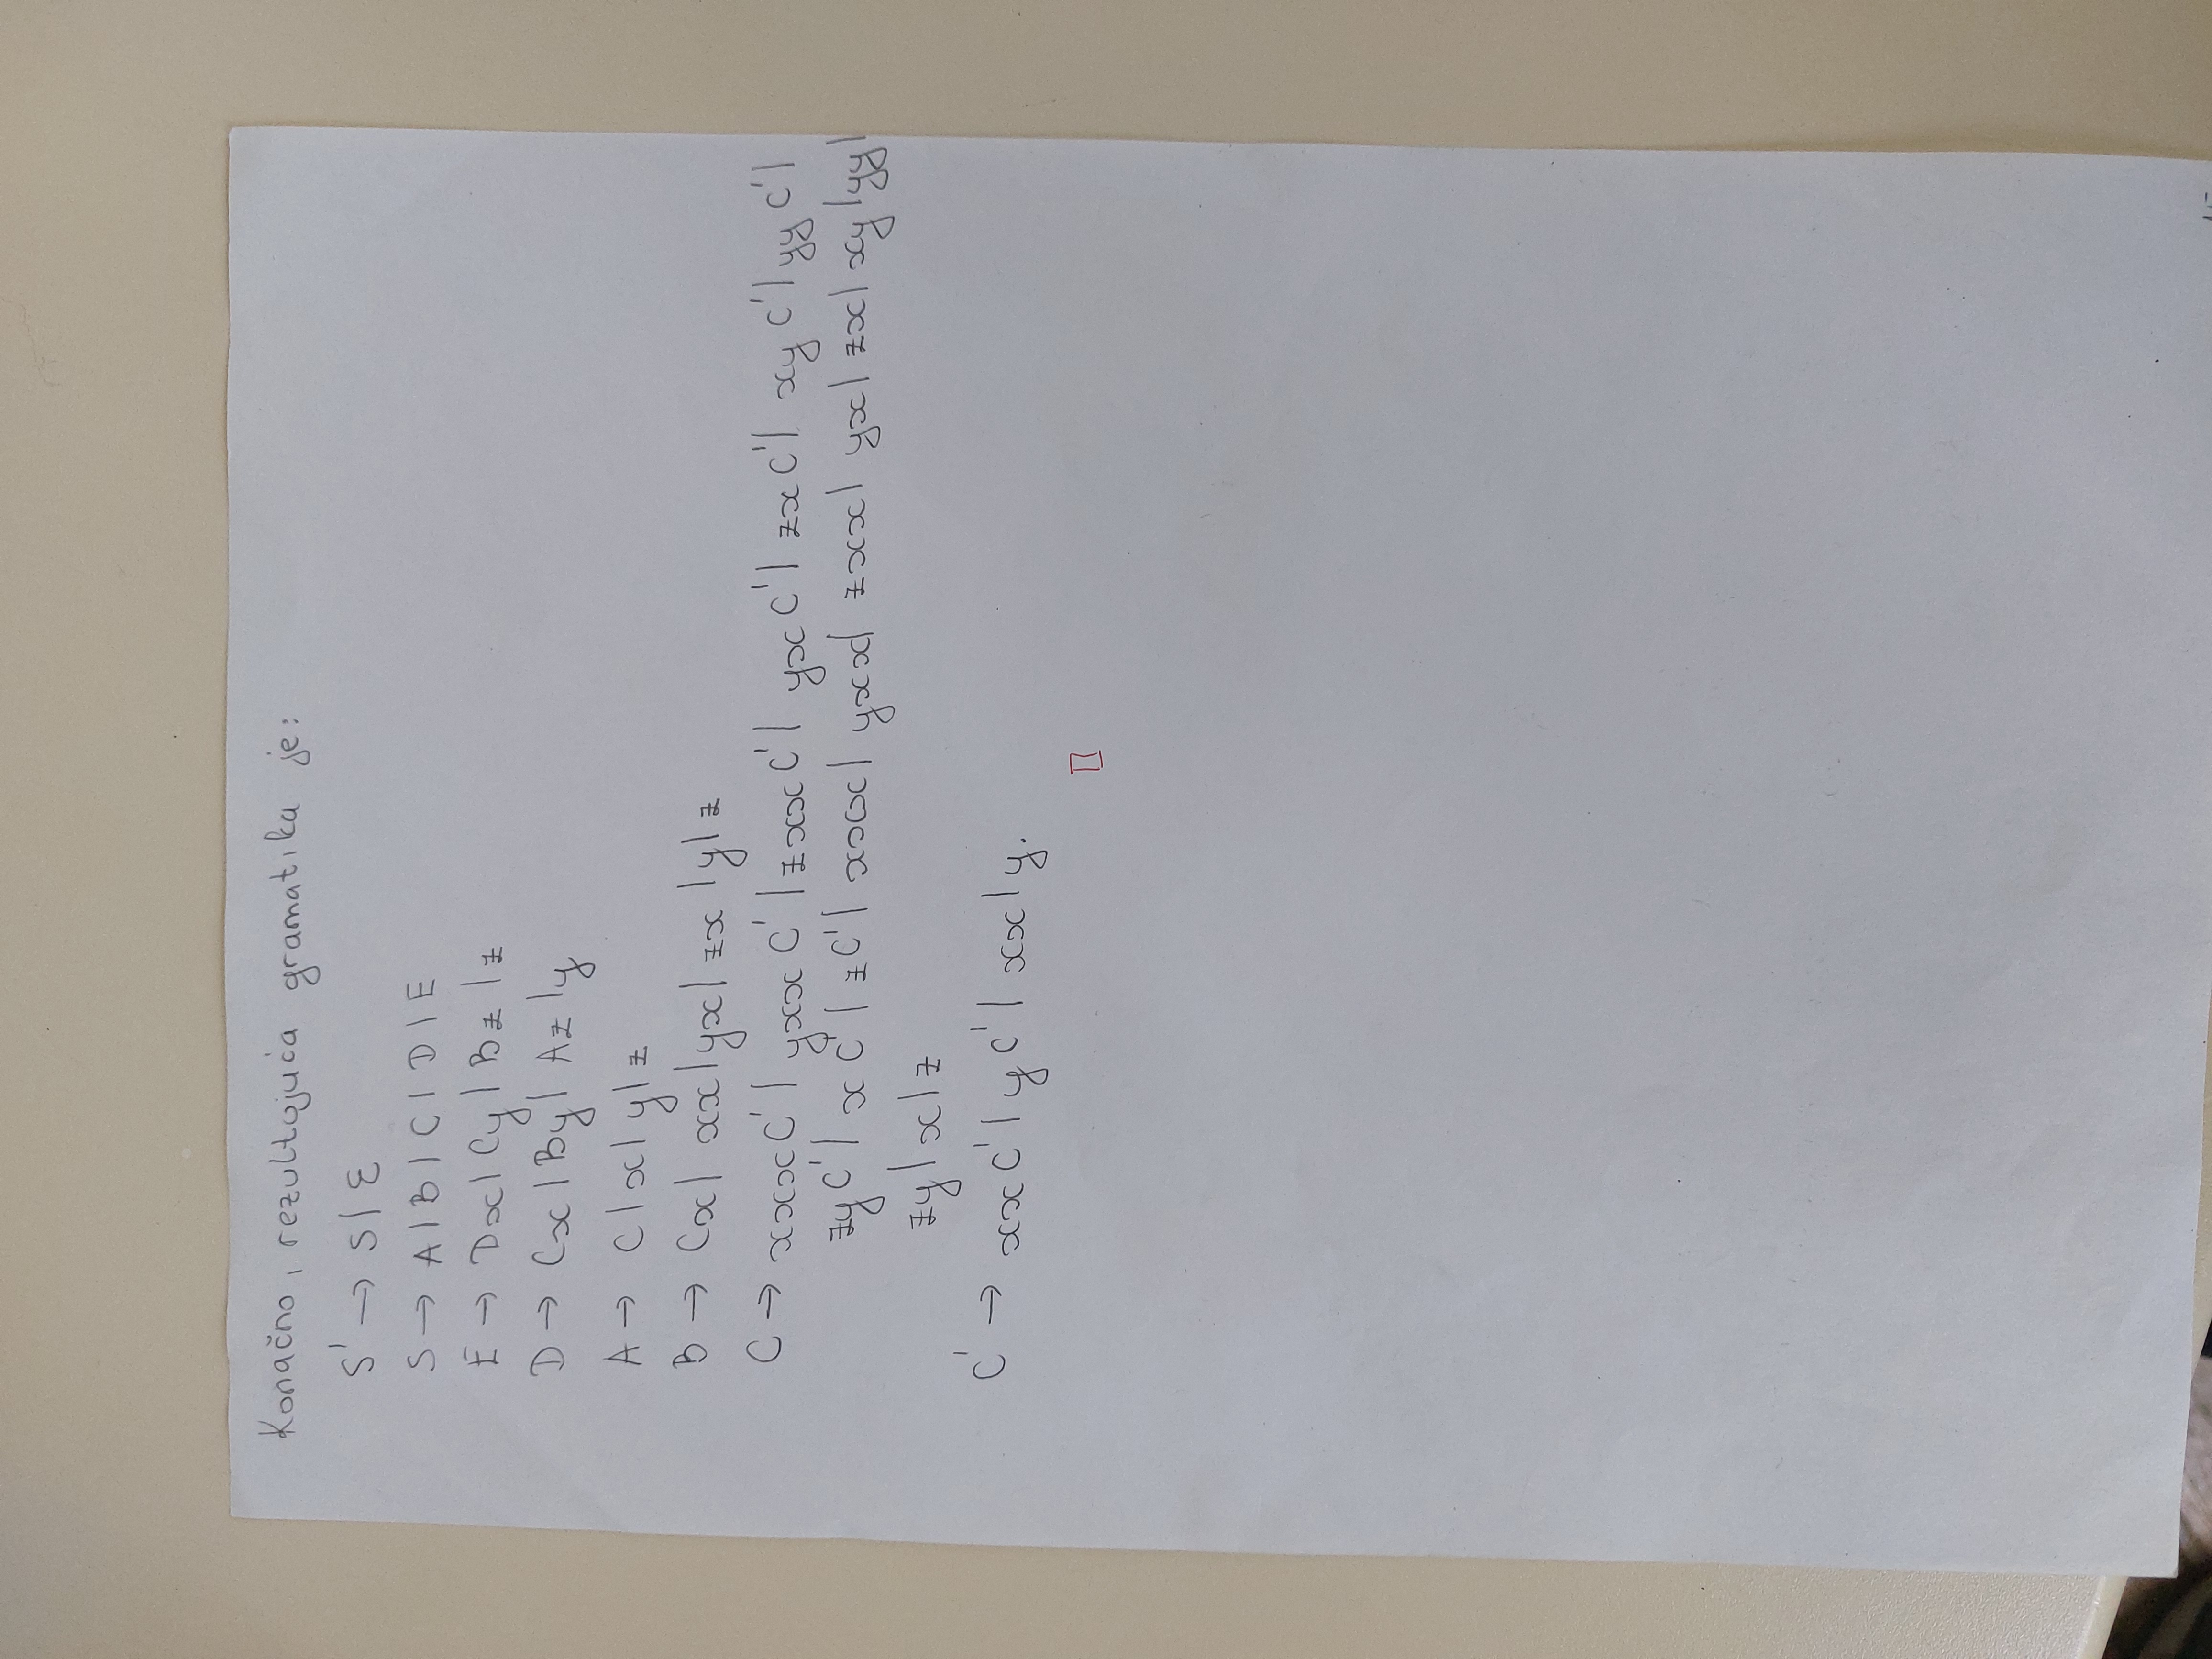 Konačno, rezultujuća gramatika je:
S' → S | ε
S → A | B | C | D | E
E → Dx | Cy | Bz | z
D → Cx | By | Az | y
A → C | x | y | z
B → Cx | xx | yx | zx | y | z
C → xxxC' | yxxC' | zxxC' | yxC' | zxC' | xyC' | yyC' |
zyC' | xC' | zC' | xxx | yxx | zxx | yx | zx | xy | yy |
zy | x | z
C' → xxC' | yC' | xx | y.